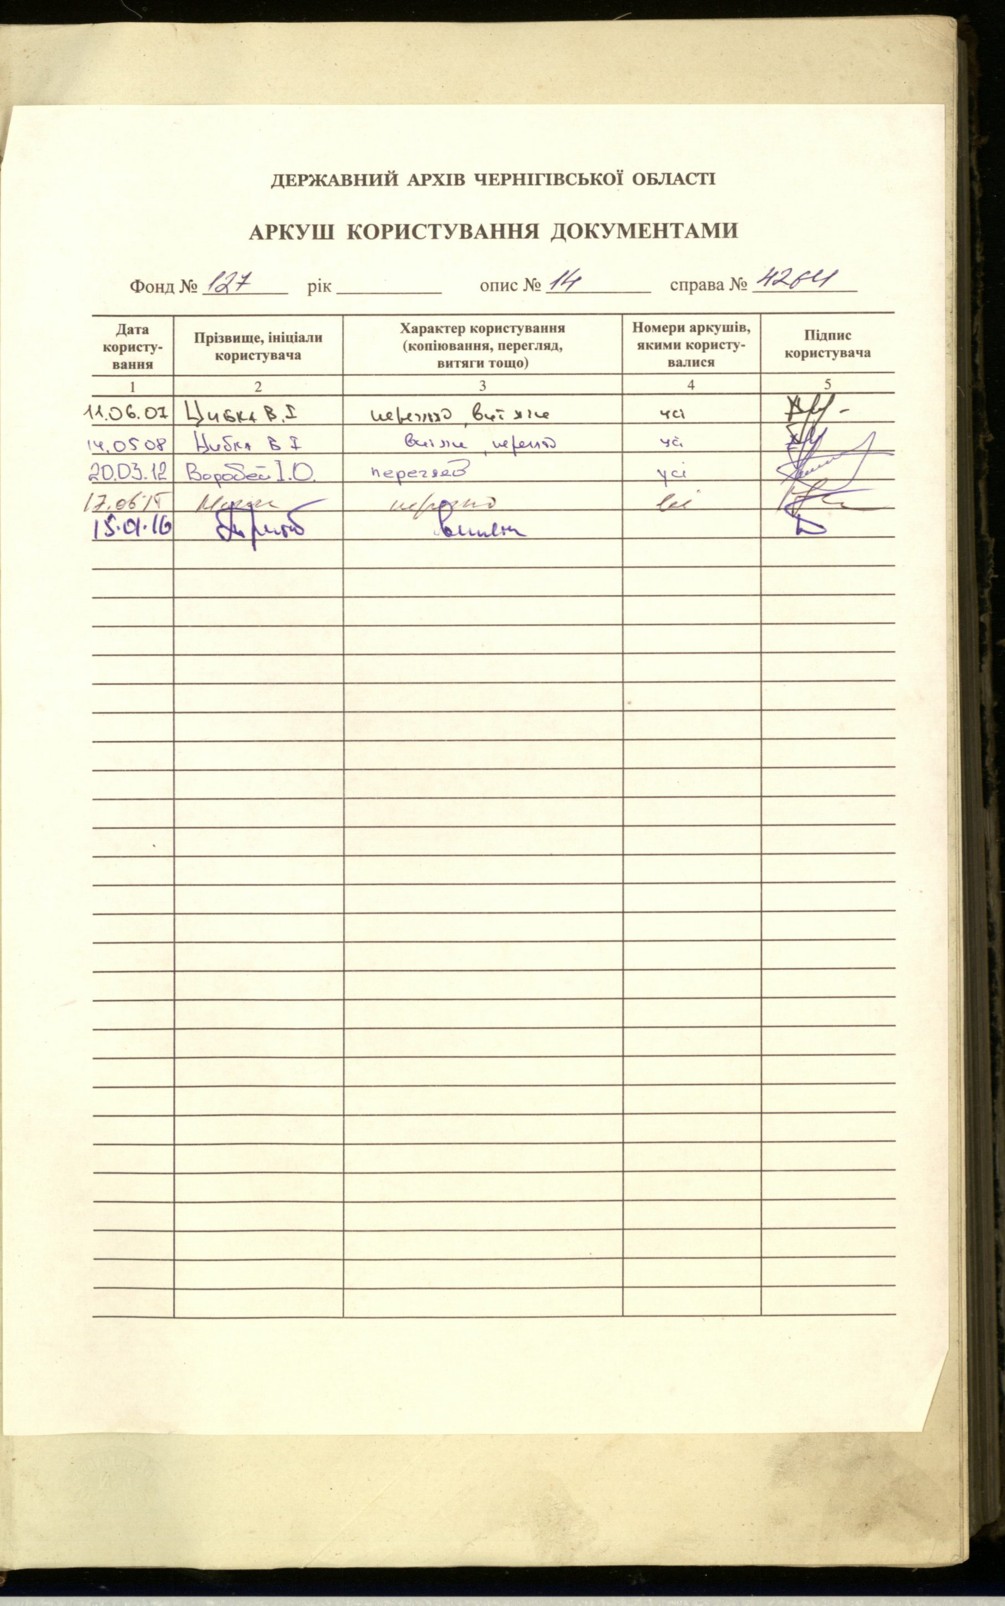 ДЕРЖАВНИЙ АРХІВ ЧЕРНІГІВСЬКОЇ ОБЛАСТІ
АРКУШ КОРИСТУВАННЯ ДОКУМЕНТАМИ
Фонд № 127 рік опис № 14 справа №
Дата користу-вання Прізвище, ініціали користувача Характер користування (копіювання, перегляд, витяги тощо) Номери аркушів, якими користу-валися Підпис користувача
1 2 3 4 5
11.06.07 Цибка В.І перегляд, витяги усі
14.05 08 Цибка В І витяги, перегляд усі
20.03.12 Воробей І.О. перегляд усі
перегляд всі
15.01.16